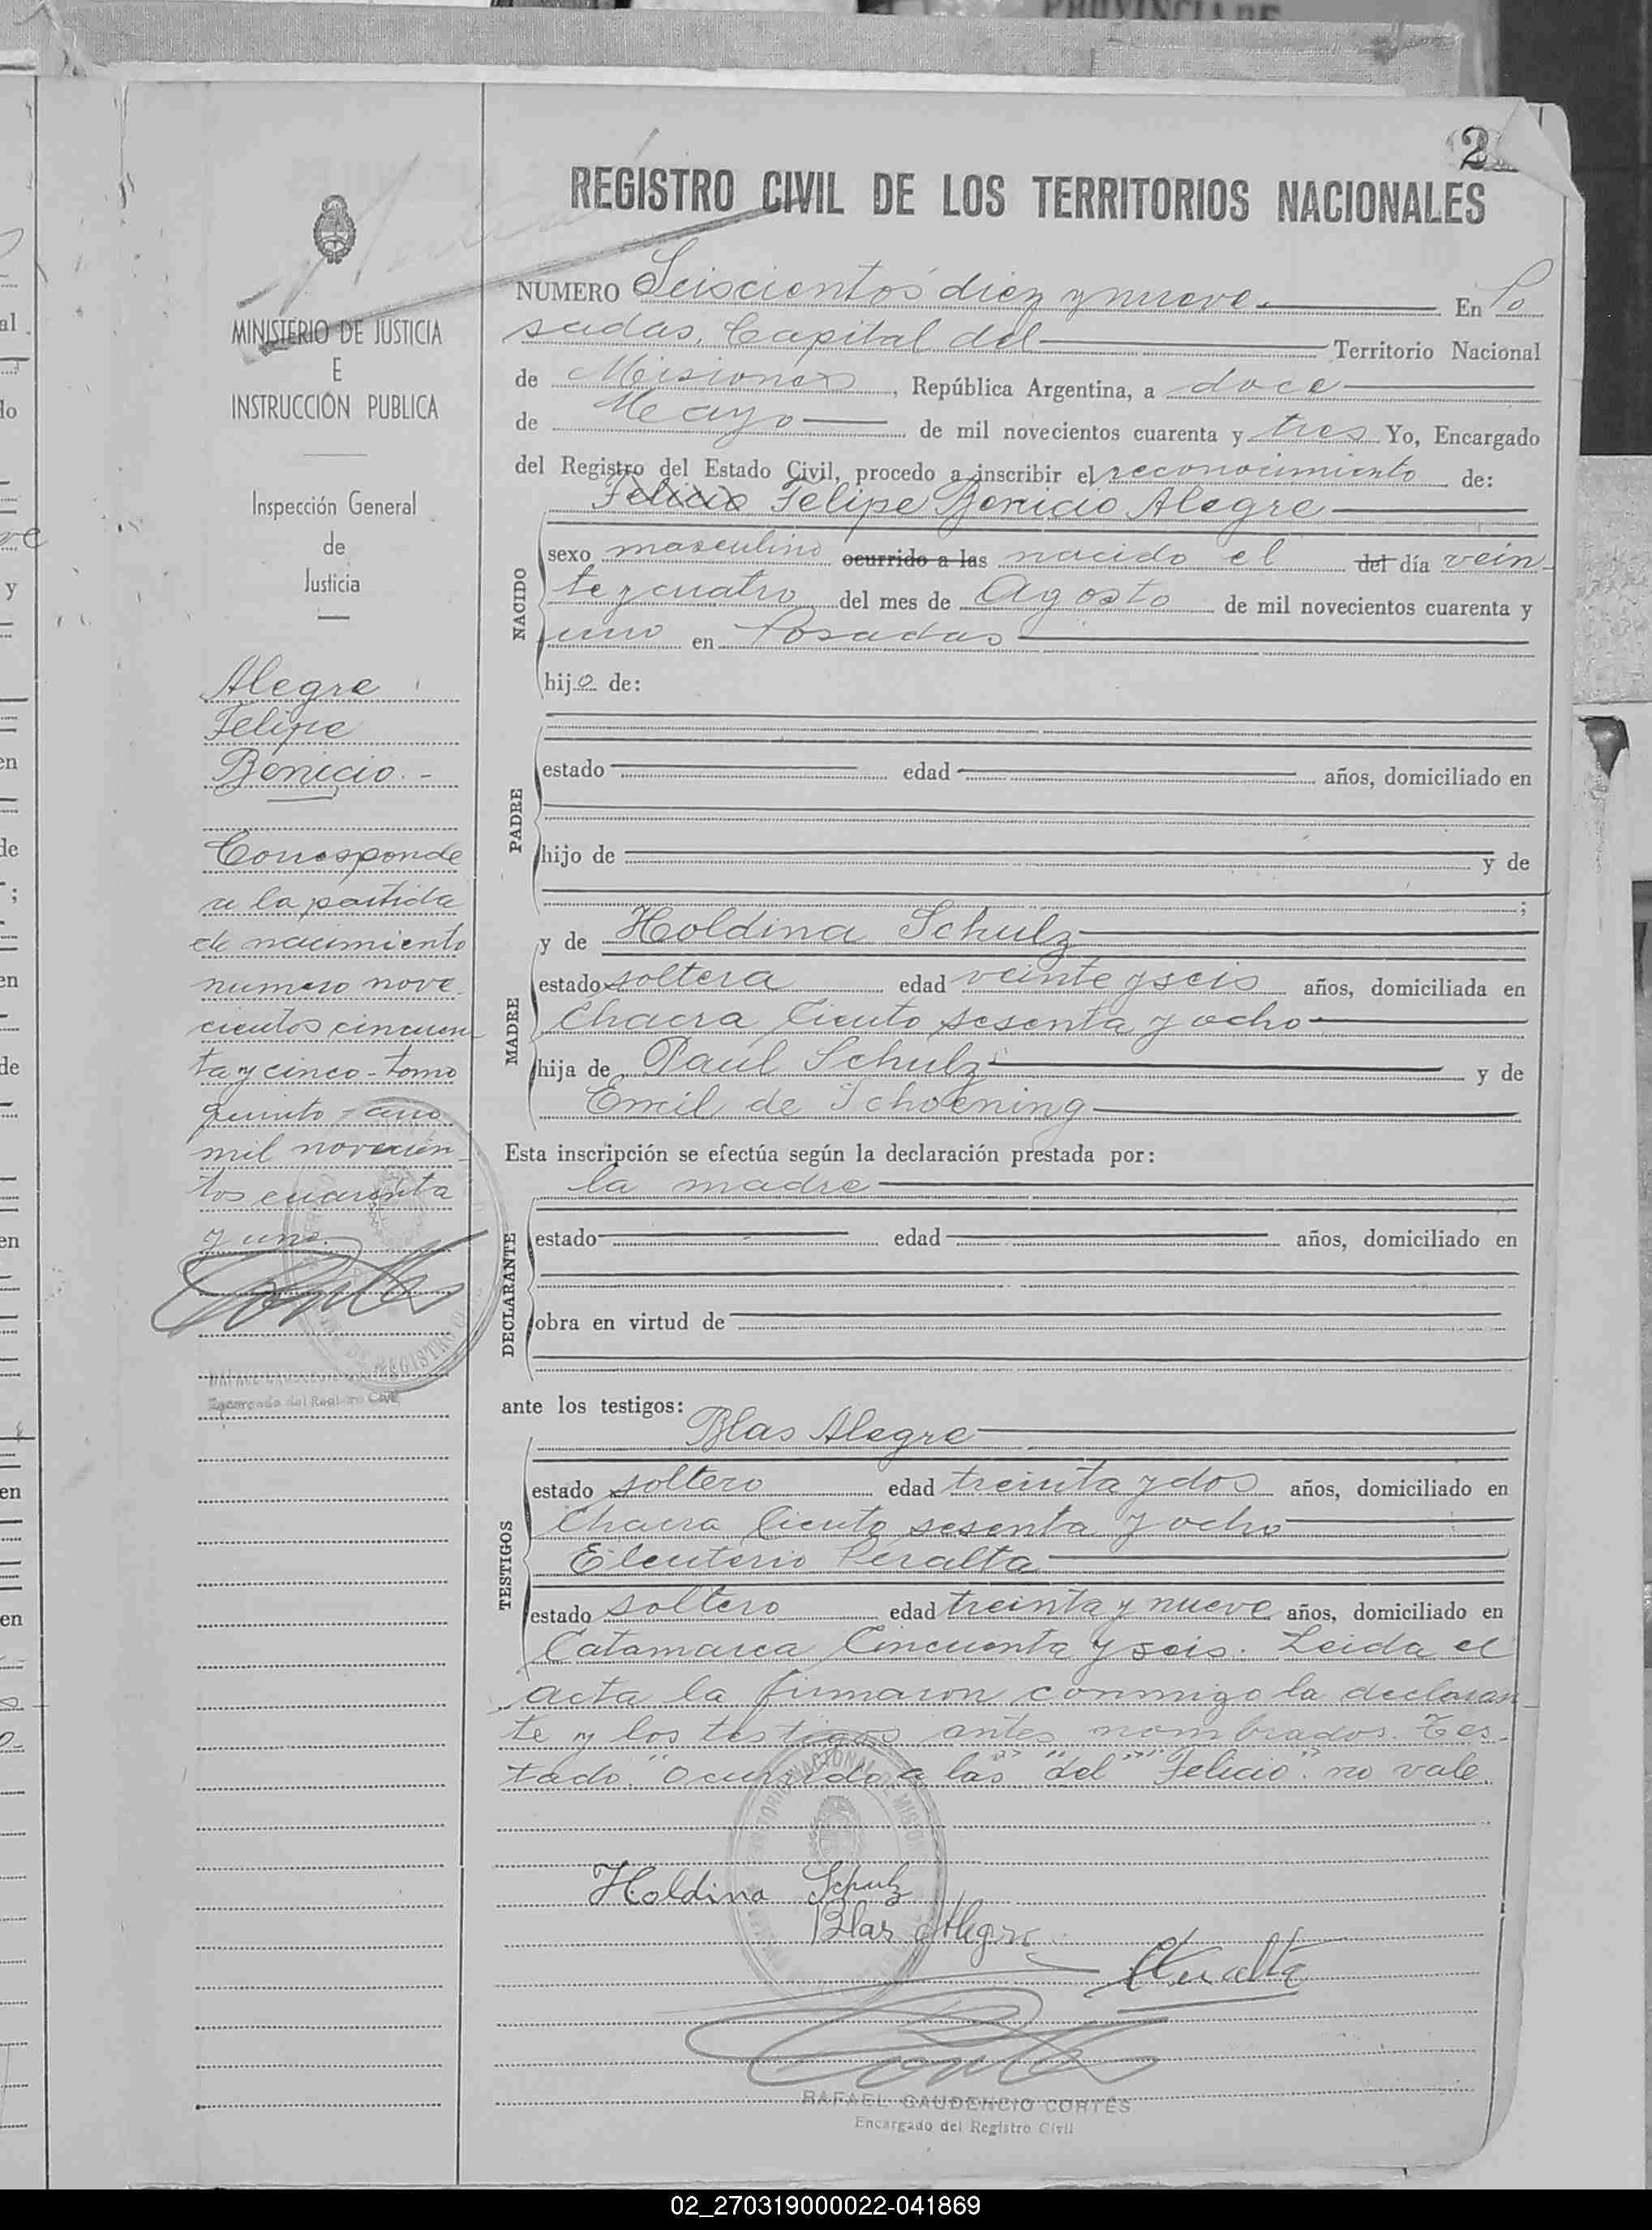 PROVINCIA DE
2
REGISTRO CIVIL DE LOS TERRITORIOS NACIONALES
MINISTERIO DE JUSTICIA
E
INSTRUCCIÓN PUBLICA
Inspección General
de
Justicia
Alegre
Felipe
Benicio.-
Corresponde
a la partida
de nacimiento
numero nove
cientos cincuen
ta y cinco - tomo
quinto - año
mil novecien
tos cuarenta
y uno.
Encargado del Registro Civil
NUMERO Seiscientos diez y nueve. En Po
sadas, Capital del Territorio Nacional
de Misiones, República Argentina, a doce
de Mayo de mil novecientos cuarenta y tres Yo, Encargado
del Registro del Estado Civil, procedo a inscribir el reconocimiento de:
Felicio Felipe Benicio Alegre
NACIDO
sexo masculino ocurrido a las nacido el del día vein
te y cuatro del mes de Agosto de mil novecientos cuarenta y
uno en Posadas
hijo de:
PADRE
estado edad años, domiciliado en
hijo de y de
;
MADRE
y de Holdina Schulz
estado soltera edad veinte y seis años, domiciliada en
Chacra Ciento sesenta y ocho
hija de Paul Schulz y de
Emil de Schoening
Esta inscripción se efectúa según la declaración prestada por:
la madre
DECLARANTE
estado edad años, domiciliado en
obra en virtud de
ante los testigos:
Blas Alegre
TESTIGOS
estado soltero edad treinta y dos años, domiciliado en
Chacra Ciento sesenta y ocho
Eleuterio Peralta
estado soltero edad treinta y nueve años, domiciliado en
Catamarca Cincuenta y seis. Leida el
acta la firmaron conmigo la declaran
te y los testigos antes nombrados. Tes-
tado: "Ocurrido a las" "del" "Felicio". no vale
Holdina Schulz
Blas Alegre
RAFAEL GAUDENCIO CORTÉS
Encargado del Registro Civil
02_270319000022-041869